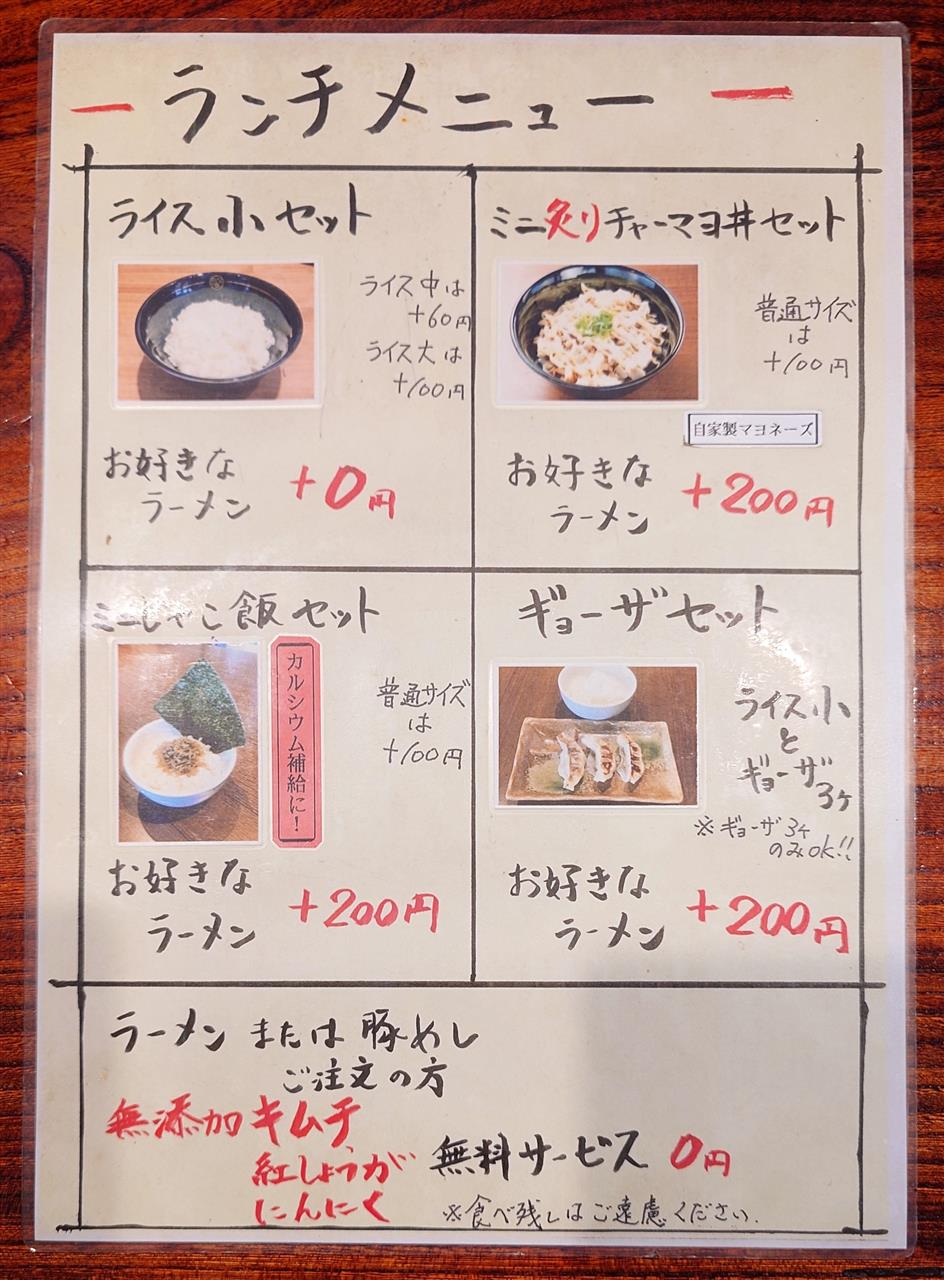 ー ランチメニュー ー
ライス小セット
ライス中は
+60円
ライス大は
+100円
お好きな
ラーメン
+0円
ミニ炙りチャーマヨ丼セット
普通サイズ
は
+100円
自家製マヨネーズ
お好きな
ラーメン
+200円
ミニじゃこ飯セット
カルシウム補給に!
普通サイズ
は
+100円
お好きな
ラーメン
+200円
ギョーザセット
ライス小
と
ギョーザ
3ヶ
※ギョーザ3ヶ
のみOK!!
お好きな
ラーメン
+200円
ラーメン または豚めし
ご注文の方
無添加キムチ
紅しょうが
にんにく
無料サービス 0円
※食べ残しはご遠慮ください.